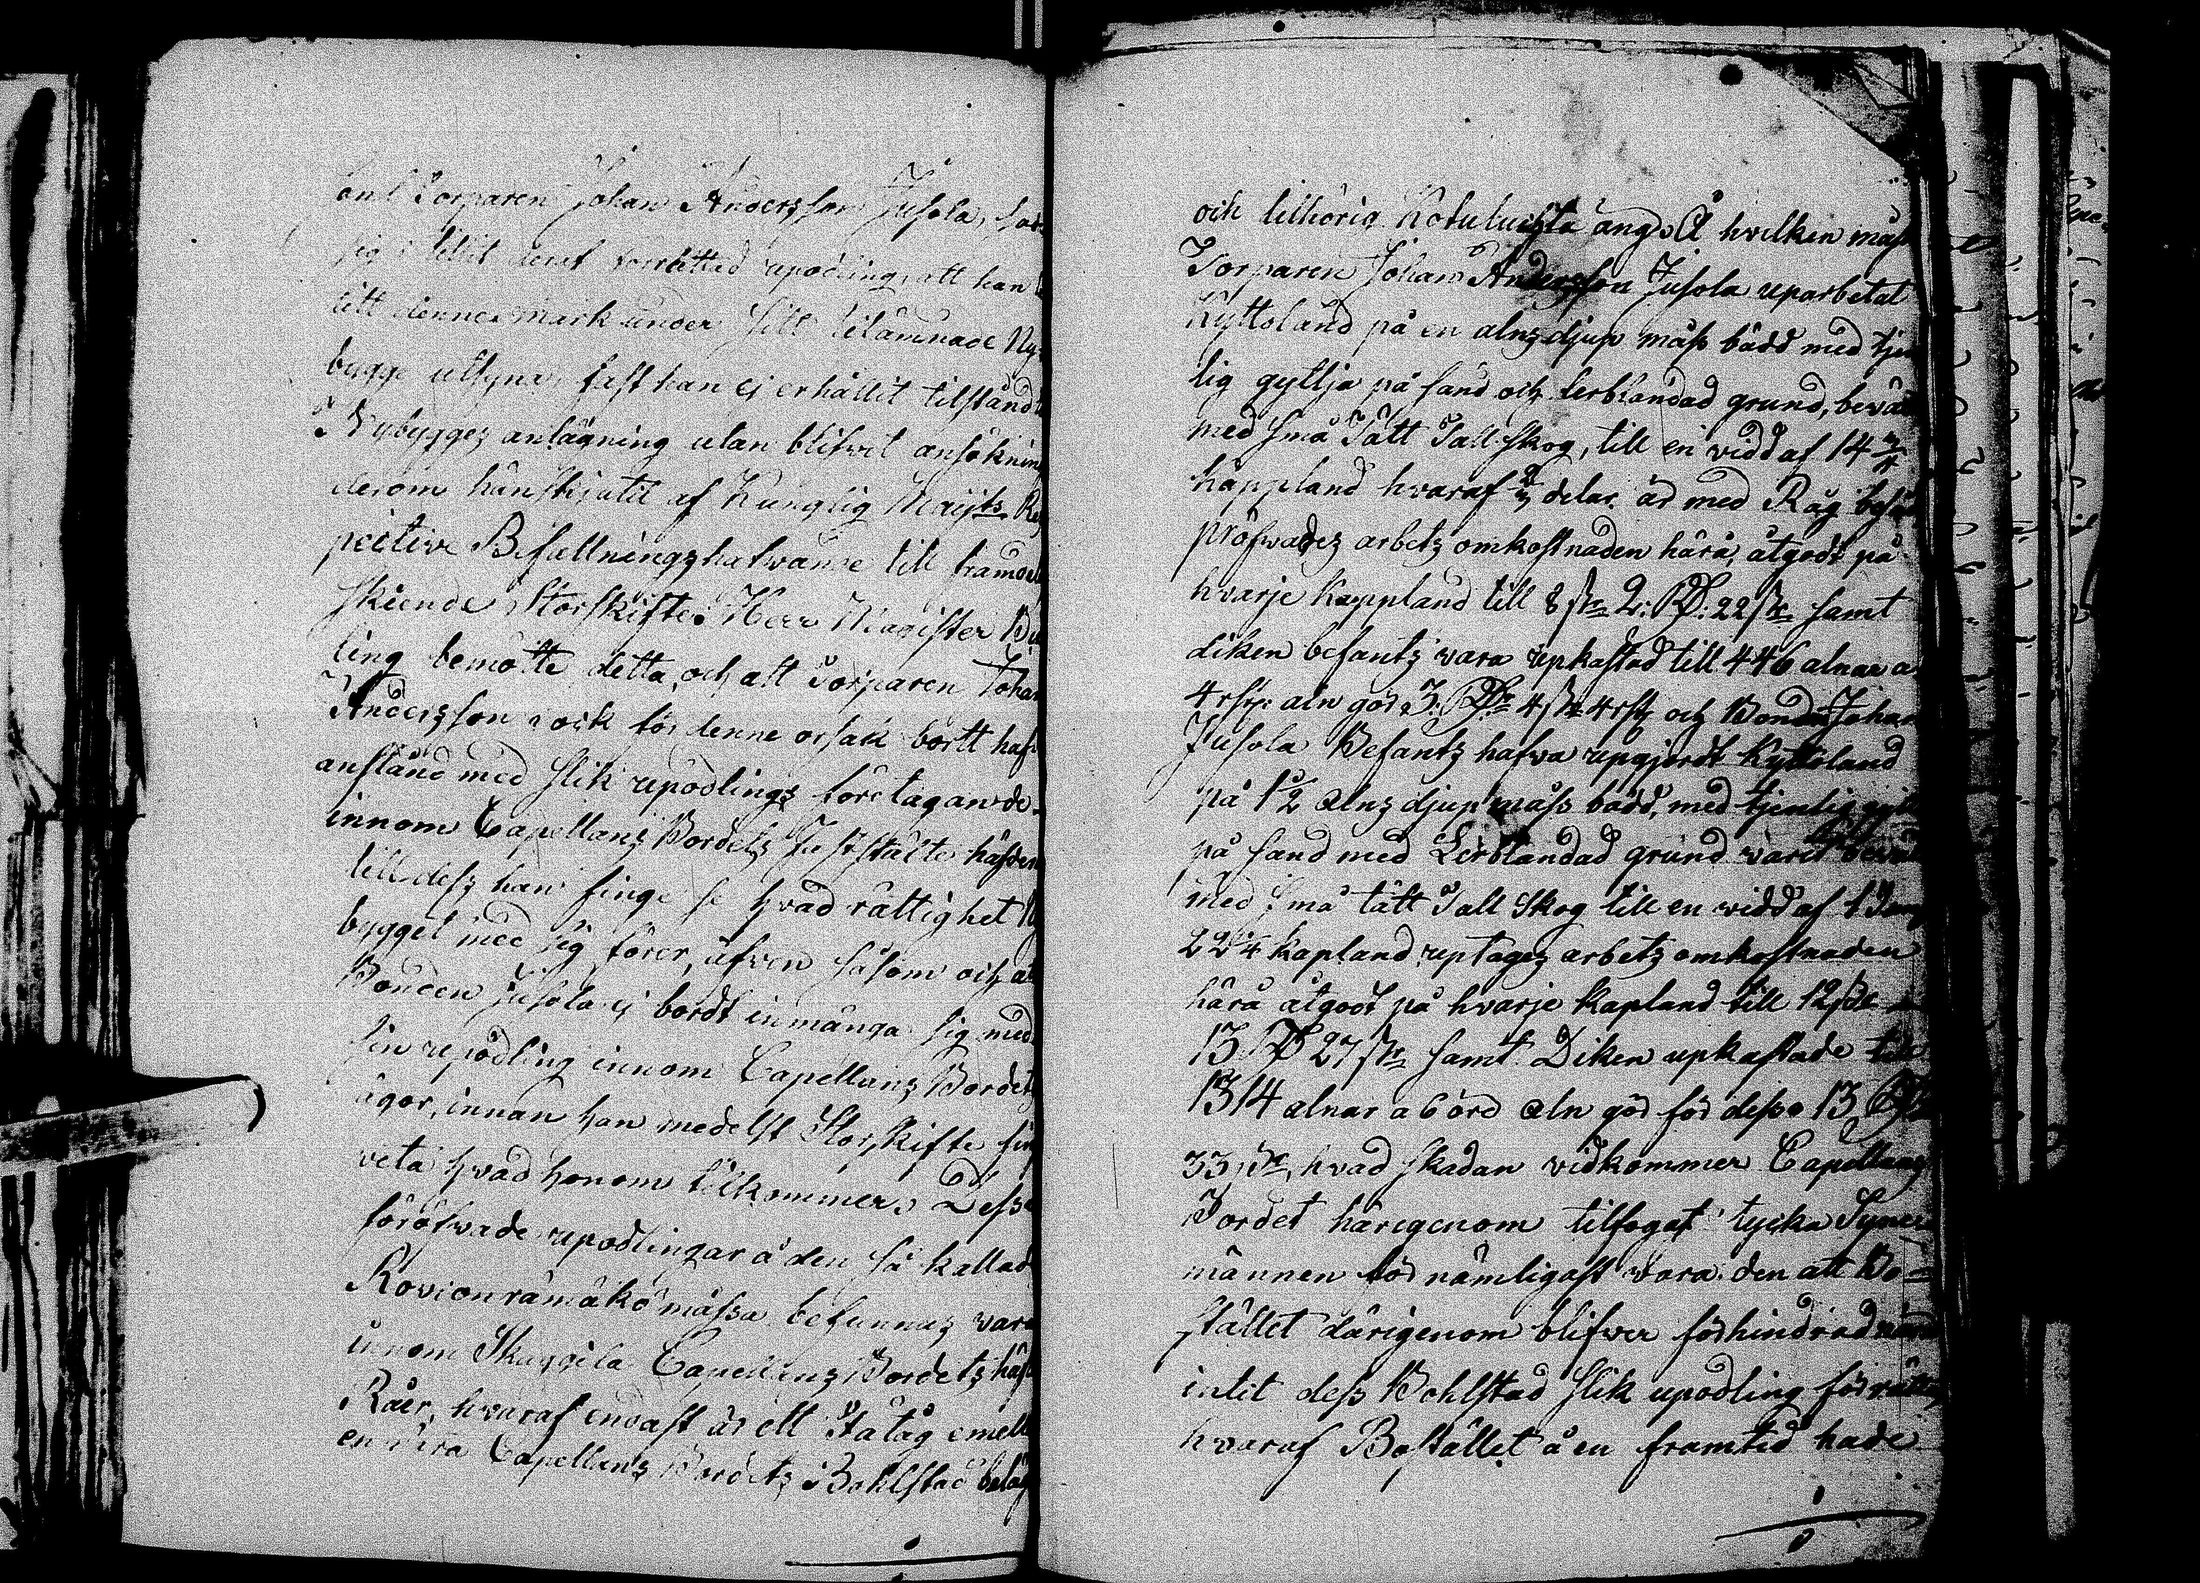 Torparen Johan Andersson Jusola, har
sig i tillit deraf förrättad upodling, att han
titt denne mark under sitt tilämnade Ny-
bygge utsyna, fast han ej erhållit tilstånd
Nybyggez anlägning utan blifvit ansöknin
derom hänskjutit af Kunglig Maijts Res
pective Befallningzhafwande till framde
skeende Storskifte. Herr Magister
ling bemötte detta, och att Torparen Johan
Andersson ock för denne orsak bortt haf
anstånd med slik upodlings företagande
innom Capellans Bordetz Juststälte häfder
till dess han finge se hvad rättighet Ny
bygget med sig förer, äfven såsom och at
Bonden Jusola ej bordt inmänga sig med
sin upodling innom Capellans Bordetz
ägor, innan han medelst Storskifte fin
veta hvad honom tilkommer. Desse
föröfvade upodlingar å den så kallad
Rovionrämäkö måssa befunnas vara
innom Skuggila Capellans Bordetz häfd
Råer, hvaraf endast är ett Ståtåg emell
en Capellans Bordetz Bohlstad beläg
och tilhörig Kotuluchta äng. Å hvilken måss
Torparen Johan Andersson Jusola uparbetat
Kyttoland på en alnz djup måss bädd med tjen
lig gyttja på sand och lerblandad grund, bevä
med små Tätt Tall skog, till en vidd af 14 3/4
kappland hvaraf 2/3 delar är med Råg besåd
pröfwadez arbetz omkostnaden härå, åtgodt på
hvarje Kappland till 8 sk 2: RD: 22 sk samt
diken befantz vara upkastad till 446 alnar a
4 rst: aln gör 3. RD 4 sk 4 rst och Bonden Johan
Jusola Befantz hafva upgjordt Kyttoland
på 1 1/2 Alnz djup måss bädd, med tjenlig gytt
på sand med Lerblandad grund varit bevä
med små tätt Tall Skog till en vidd af 1 Tunn
22 3/4 kapland uptagez arbetz omkostnaden
härå åtgodt på hvarje Kapland till 12 sk
13 RD 27 sk samt Diken upkastade till
1314 alnar a 6 örd Aln gör för dess 13 RD
33 sk, hvad skadan vidkommer Capellans
Bordet härigenom tilfogat tycka Syne
männen för nämligast vara den att Bo-
stället därigenom blifver förhindrad
intit dess Bohlstad slik upodling förrätta,
hvaraf Bostället å en framtid hade